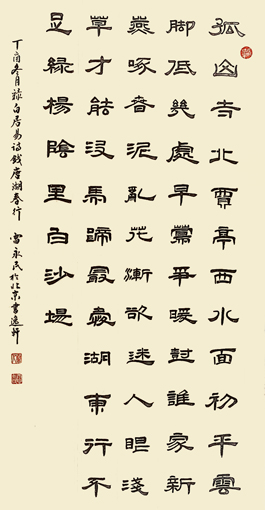 孤山寺北賈亭西水面初平雲
脚低幾處早鶯爭暖樹誰家新
燕啄春泥亂花漸欲迷人眼淺
草才能没馬蹄最愛湖東行不
足緑楊陰里白沙堤
丁酉冬月禄白居易詩錢唐湖春行 雷永民於北京書逸軒